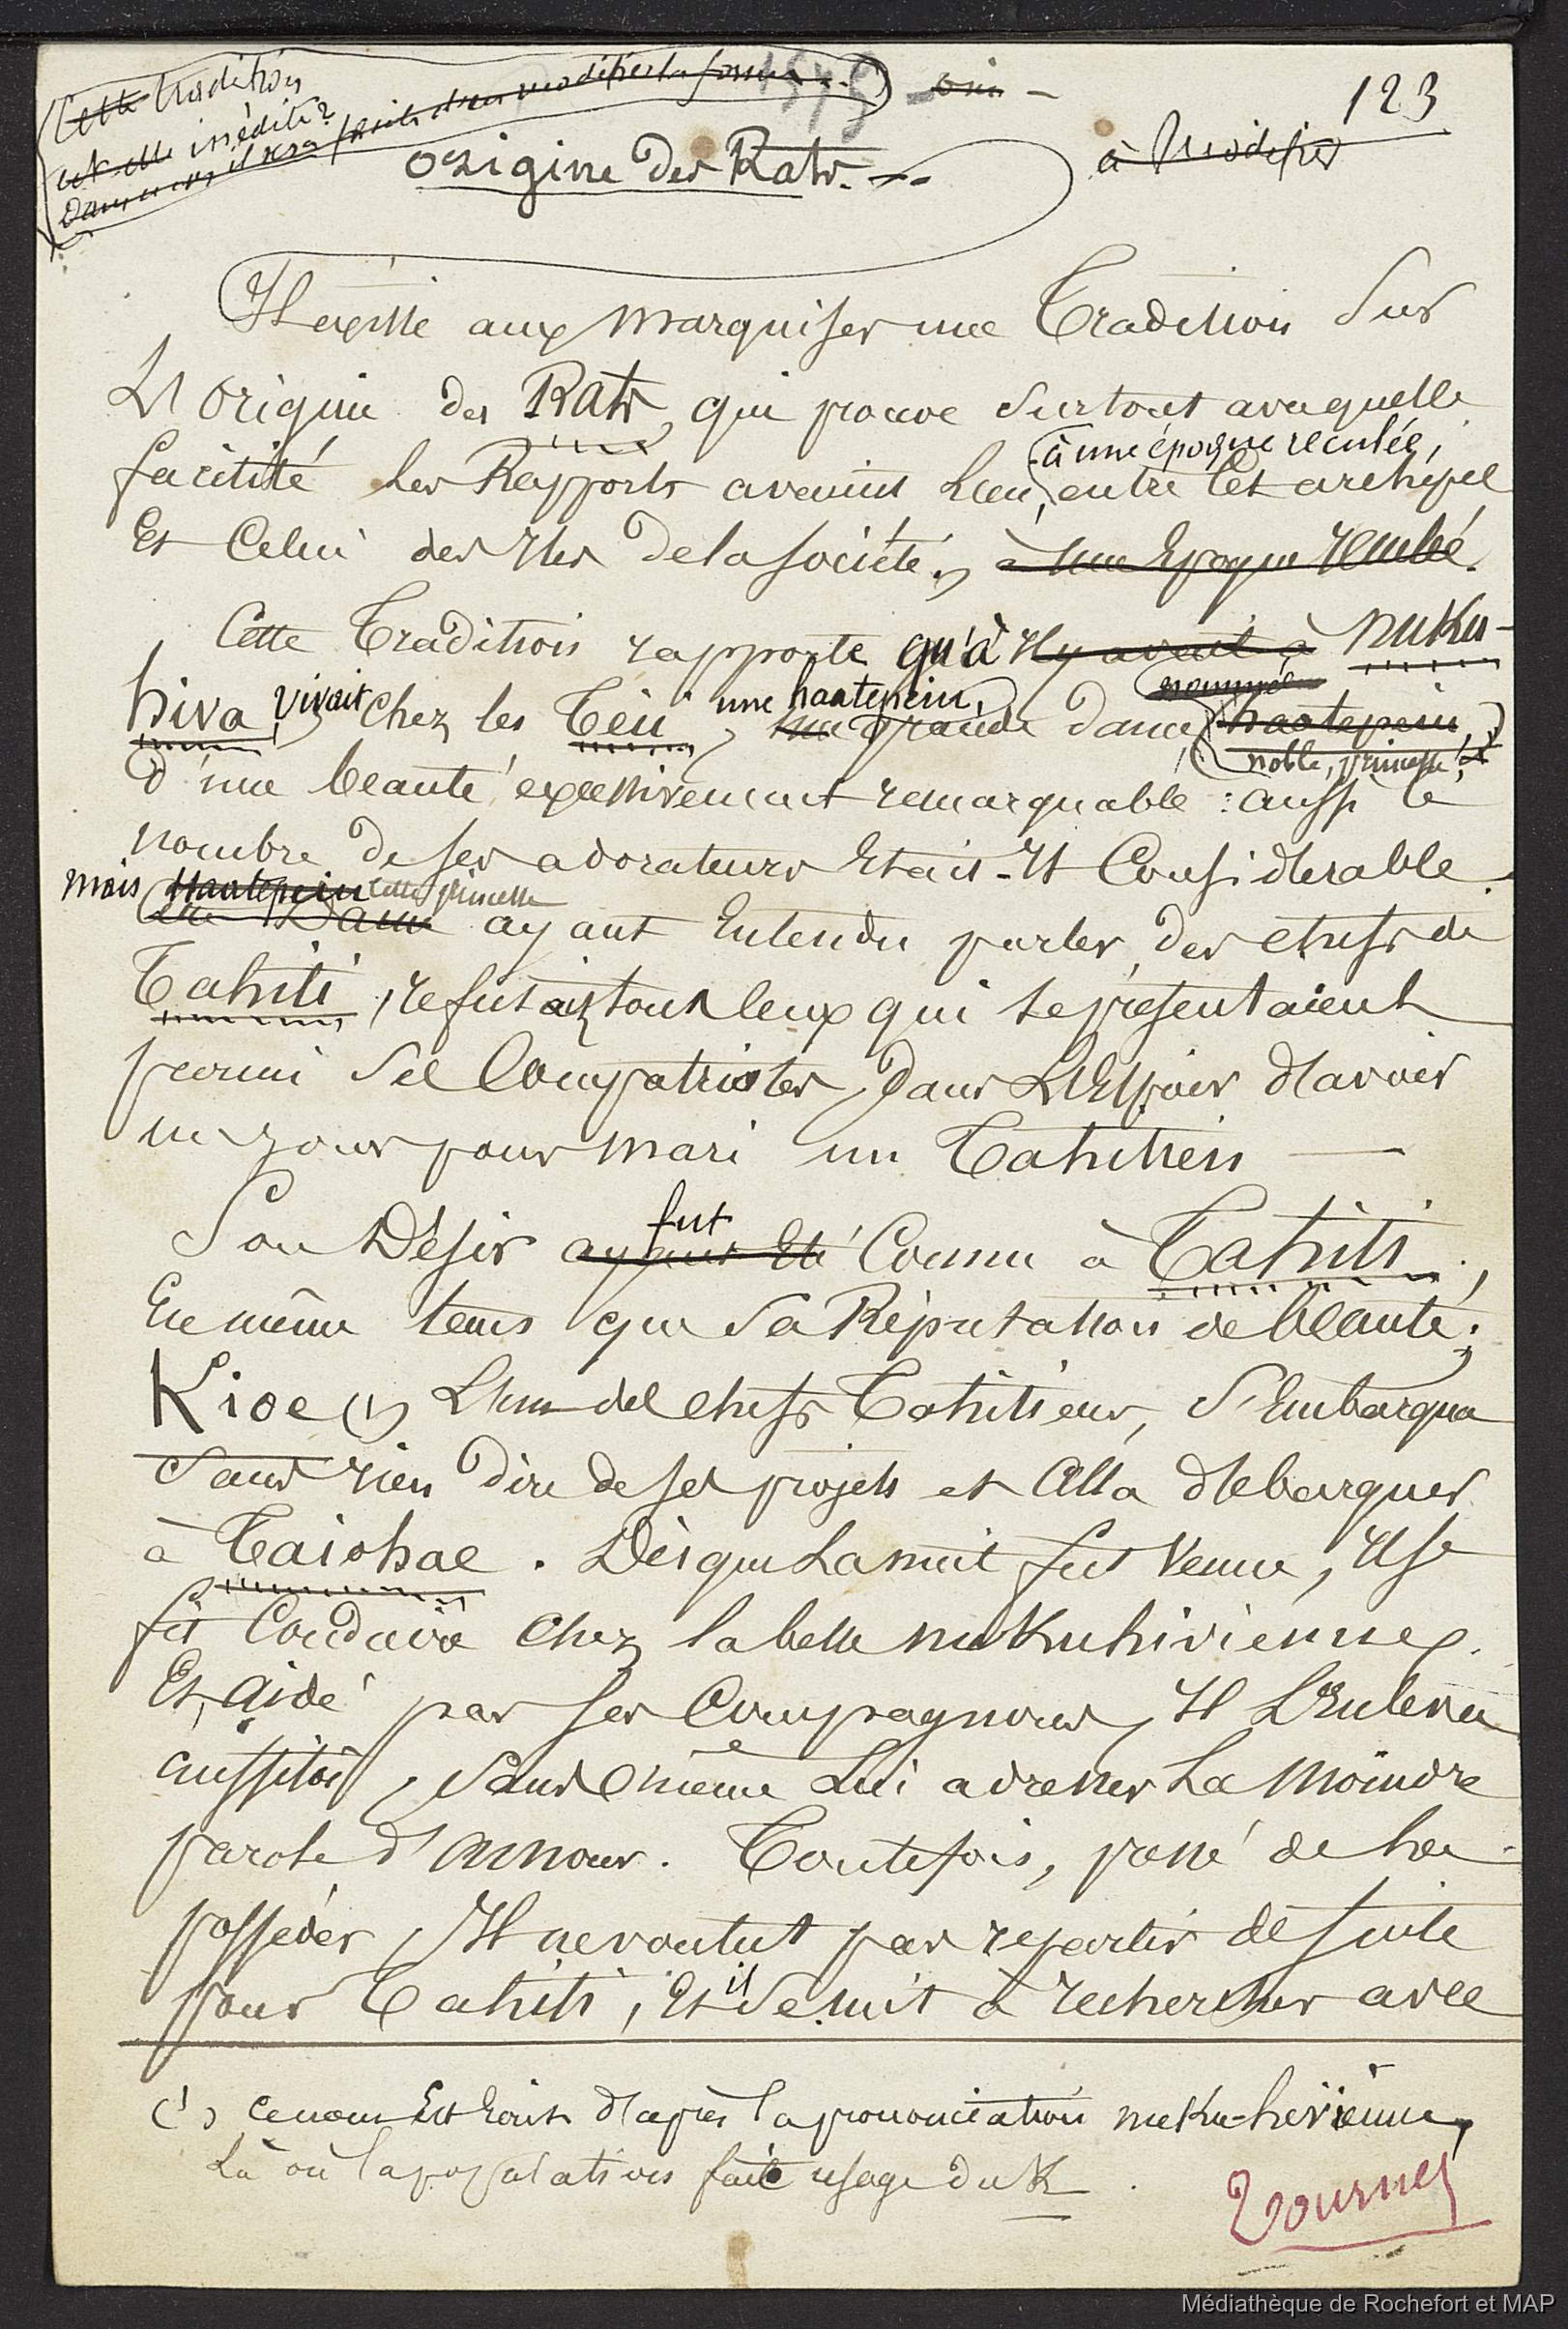 Cette tradition
est elle inédite?
dans ce cas il sera facile d'en modifier la forme
oui
123
à Modifier
Origine des Rats.
Il existe aux Marquises une Tradition Sur
L'origine des Rats, qui prouve Surtout avec quelle
à une époque reculée,
facilité les Rapports avaient Lieu, entre cet archipel
Et Celui des Iles de la Société, à une Epoque reculée.
Cette Tradition rapporte qu'à Il y avait à nuku-
hiva, vivait chez les Teii, une haatepeiu, une grande dame, nommée haatepeiu,
noble, princesse,
d'une beauté excessivement remarquable : aussi le
nombre de ses adorateurs Etait-Il Considérable.
mais Haatepeiu cette princesse
Cette Dame ayant Entendu parler des chefs de
Tahiti, refusait tous Ceux qui se présentaient
parmi Ses Compatriotes, Dans L'Espoir d'avoir
un jour pour mari un Tahitien —
Son Désir fut ayant Eté Connu à Tahiti,
En même tems que Sa Réputation de beauté;
Kioe (1) L'un des chefs Tahitiens, S'Embarqua
Sans rien Dire de ses projets et Alla débarquer
à Taiohae. Dès que La nuit fut Venue, Il se
fit Conduire chez la belle nukuhivienne,
Et, aidé par ses Compagnons, Il L'Enleva
aussitôt, Sans même Lui adresser La Moindre
parole d'Amour. Toutefois, pressé de la
posséder, Il ne voulut pas repartir de suite
pour Tahiti, Et il Se mit à rechercher avec
(1) ce nom Est Ecrit d'après la prononciation nuku-hivienne,
Là où la population fait usage du K.
Tournez
Médiathèque de Rochefort et MAP